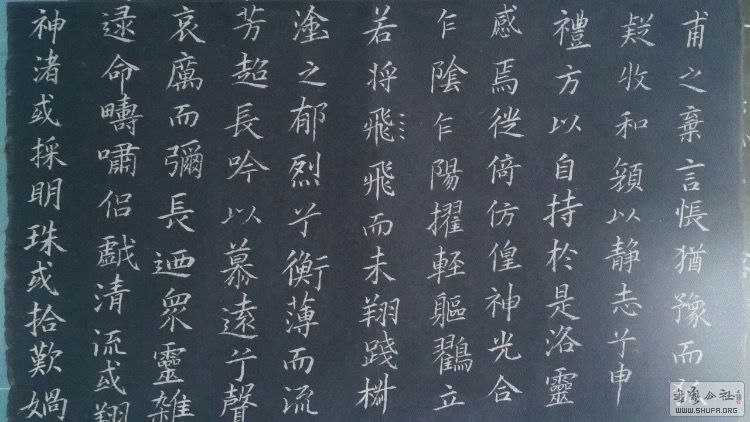 甫之棄言悵猶豫而
疑收和顏以静志兮申
禮方以自持於是洛靈
感焉徙倚仿偟神光合
乍陰乍陽擢輕軀鶴立
若将飛飛而未翔踐椒
塗之郁烈兮衡薄而流
芳超長吟以慕遠兮聲
哀厲而彌長迺眾靈雜
遝命疇嘯侣戲清流或翔
神渚或採明珠或拾歎媧
WWW.SHUFA.ORG